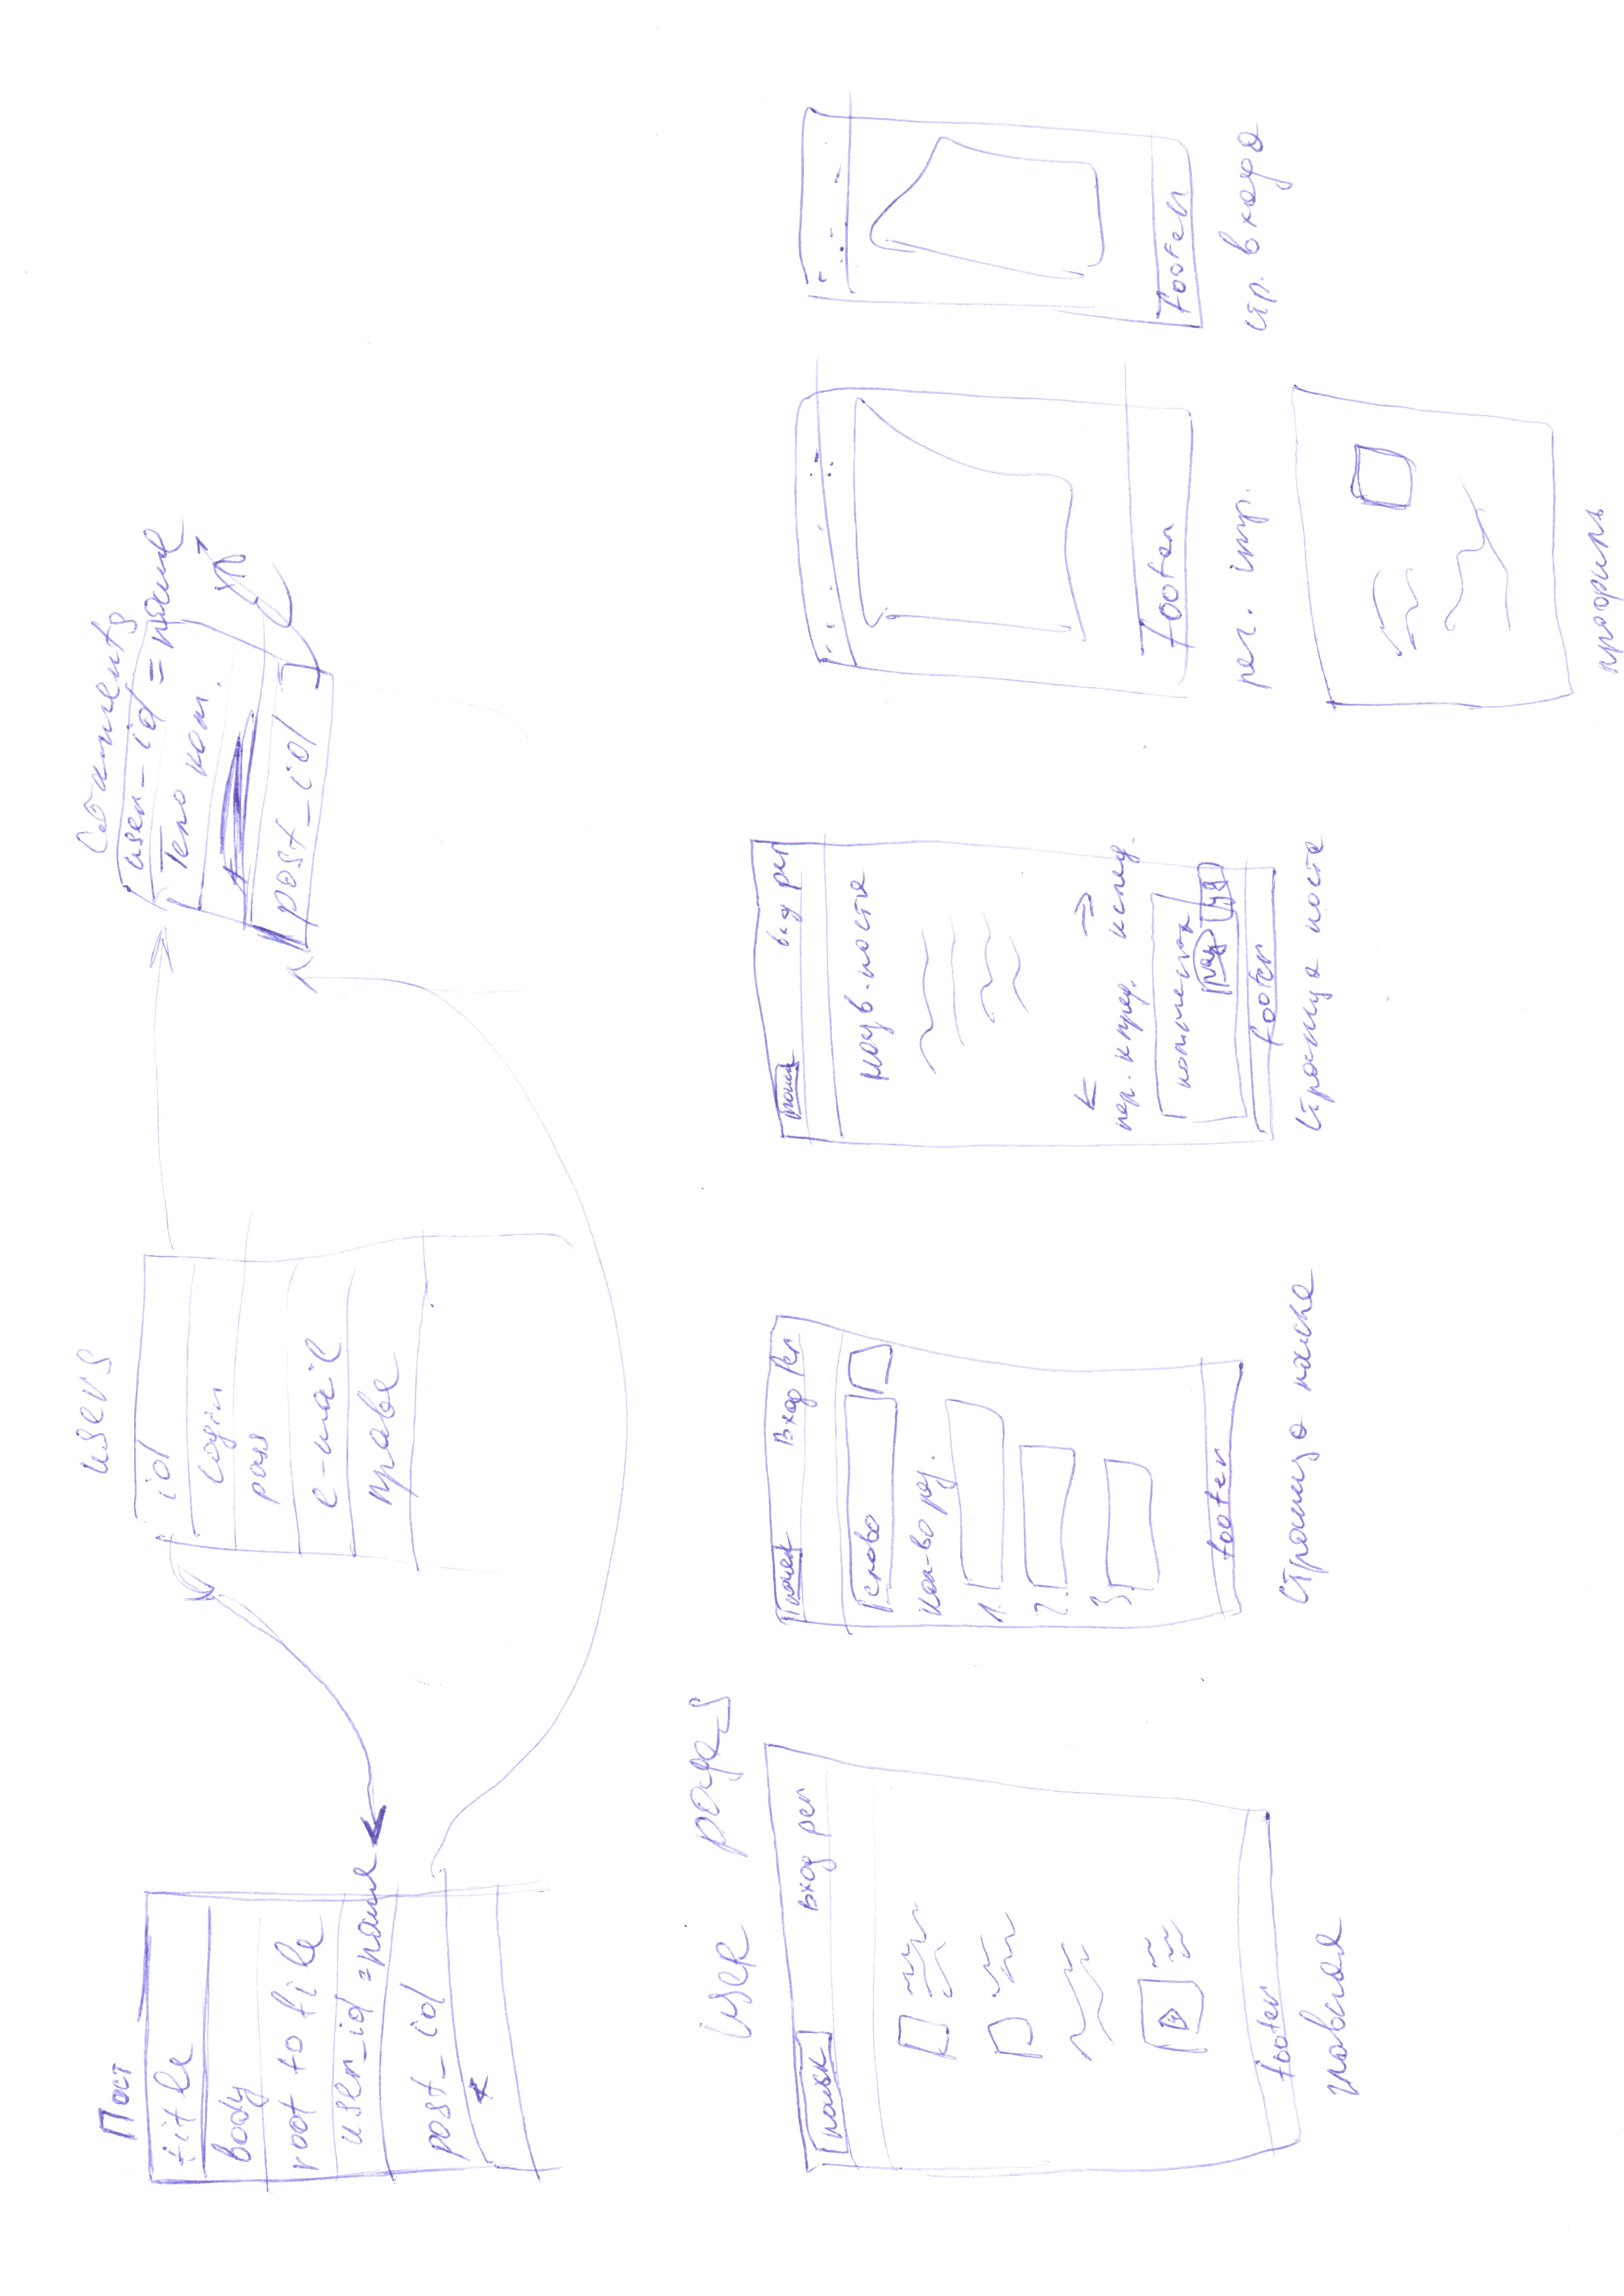 Пост
title
body
root to file
user_id = name
post_id
users
id
login
pass
e-mail
права
Comments
user_id = name
Тело ком.
post_id
user pages
поиск
вход рег
footer
главная
поиск
Вход Рег
слово
кол-во рез.
1.
2.
3.
footer
Страница поиска
поиск
вход рег
назв. поста
пер. к пред.
к след.
footer
Страница поста
footer
рег. стр.
footer
стр. входа
профиль